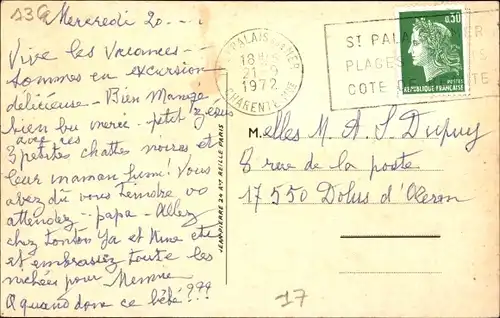 13G
Mercredi 20
Vive les Vacances
sommes en excursion
délicieuse - Bien Mangé
bien bu merci - petit Zésus
avec ses
3 petites chattes noires et
leur maman fumé! Vous
avez dû vous
attendez - papa - Allez
chez tonton et
et embrassez toute les
nichées pour Memme
A quand donc ce bébé???
JEAN-PIERRE 24 REILLE PARIS
ST PALAIS S MER
18H
21-9
1972
CHARENTE MME
ST PALAIS MER
PLAGES
COTE DE
0,30
POSTES
REPUBLIQUE FRANÇAISE
Melles M A S Dupuy
8 rue de la poste
17550 Dolus d'Oleron
17